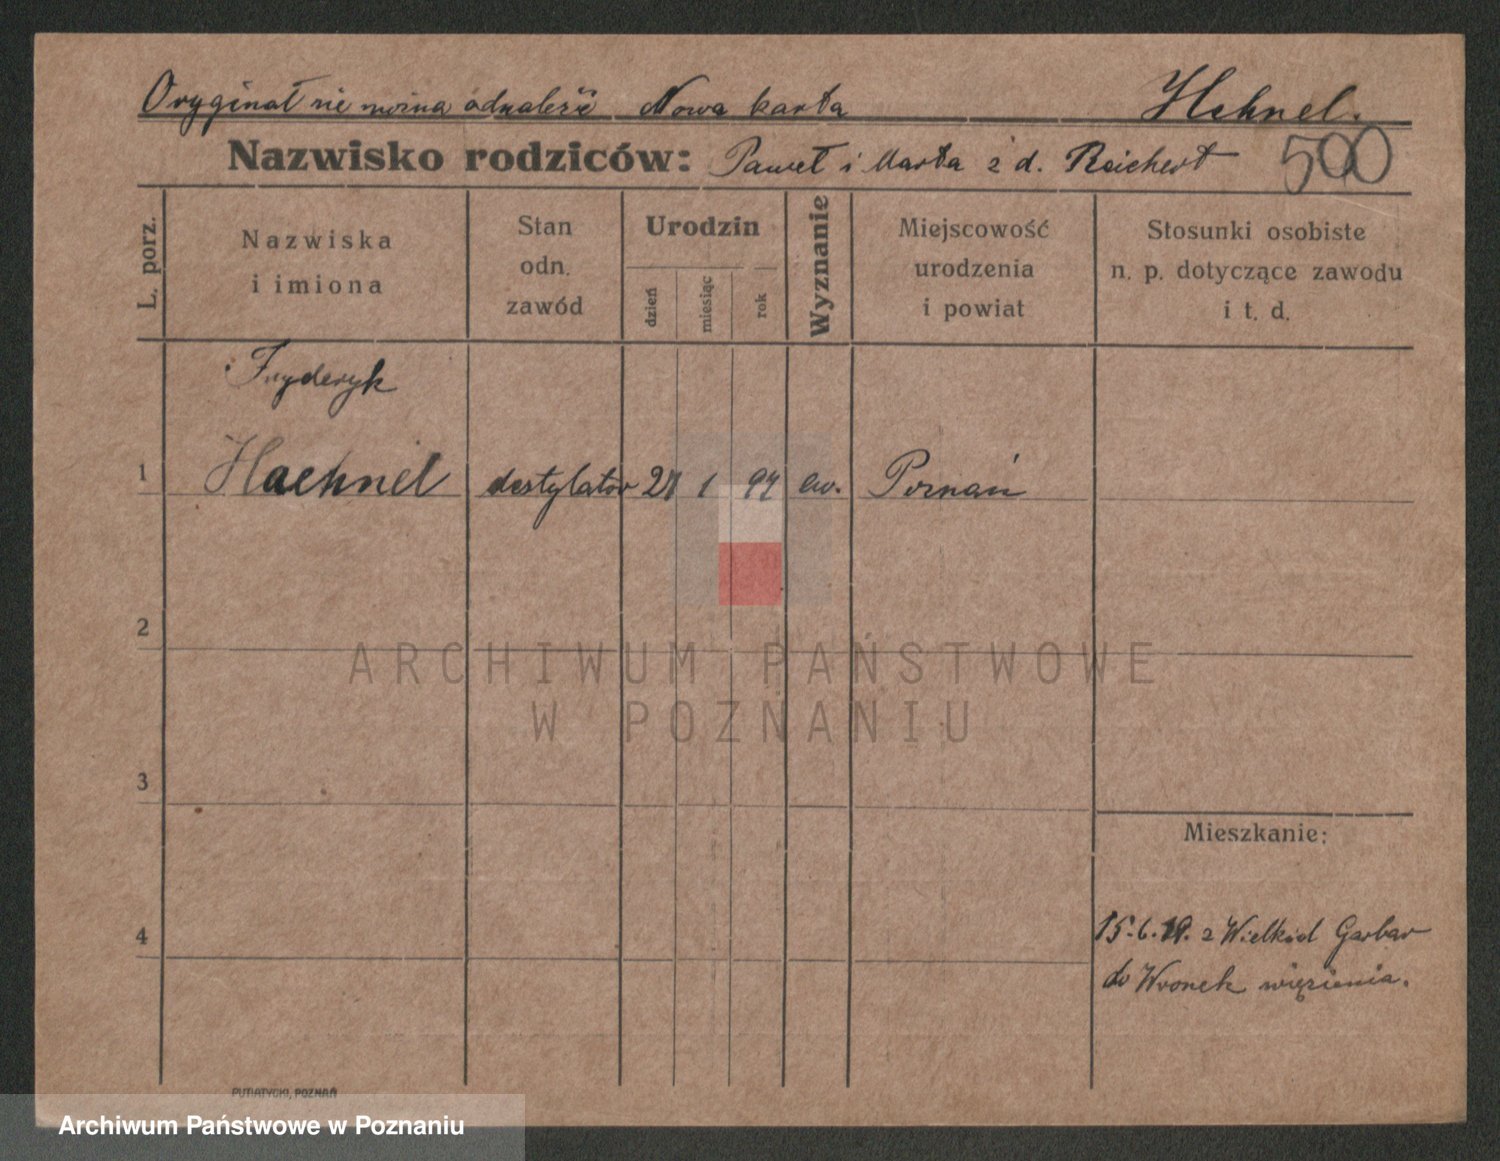 Oryginał nie można odnaleźć Nowa karta Hehnel.
Nazwisko rodziców: Paweł i Marta z d. Reichert 500
L. porz.
Nazwiska
i imiona
Stan
odn.
zawód
Urodzin
dzień
miesiąc
rok
Wyznanie
Miejscowość
urodzenia
i powiat
Stosunki osobiste
n. p. dotyczące zawodu
i t. d.
Fryderyk
1 Haehnel destylator 1 94 ew. Poznań
2
ARCHIWUM PAŃSTWOWE
W POZNANIU
3
Mieszkanie:
4
15.6.19. z Wielkich Garbar
do Wronek więzienia.
PUTIATYCKI, POZNAŃ
Archiwum Państwowe w Poznaniu